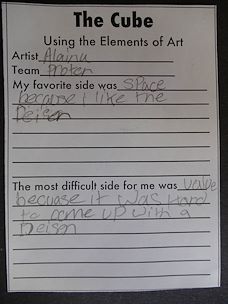 The Cube
Using the Elements of Art
Artist Alaina
Team Proten
My favorite side was space
because I like the
Deison
The most difficult side for me was value
becuase it was Hard
to come up with a
Deison